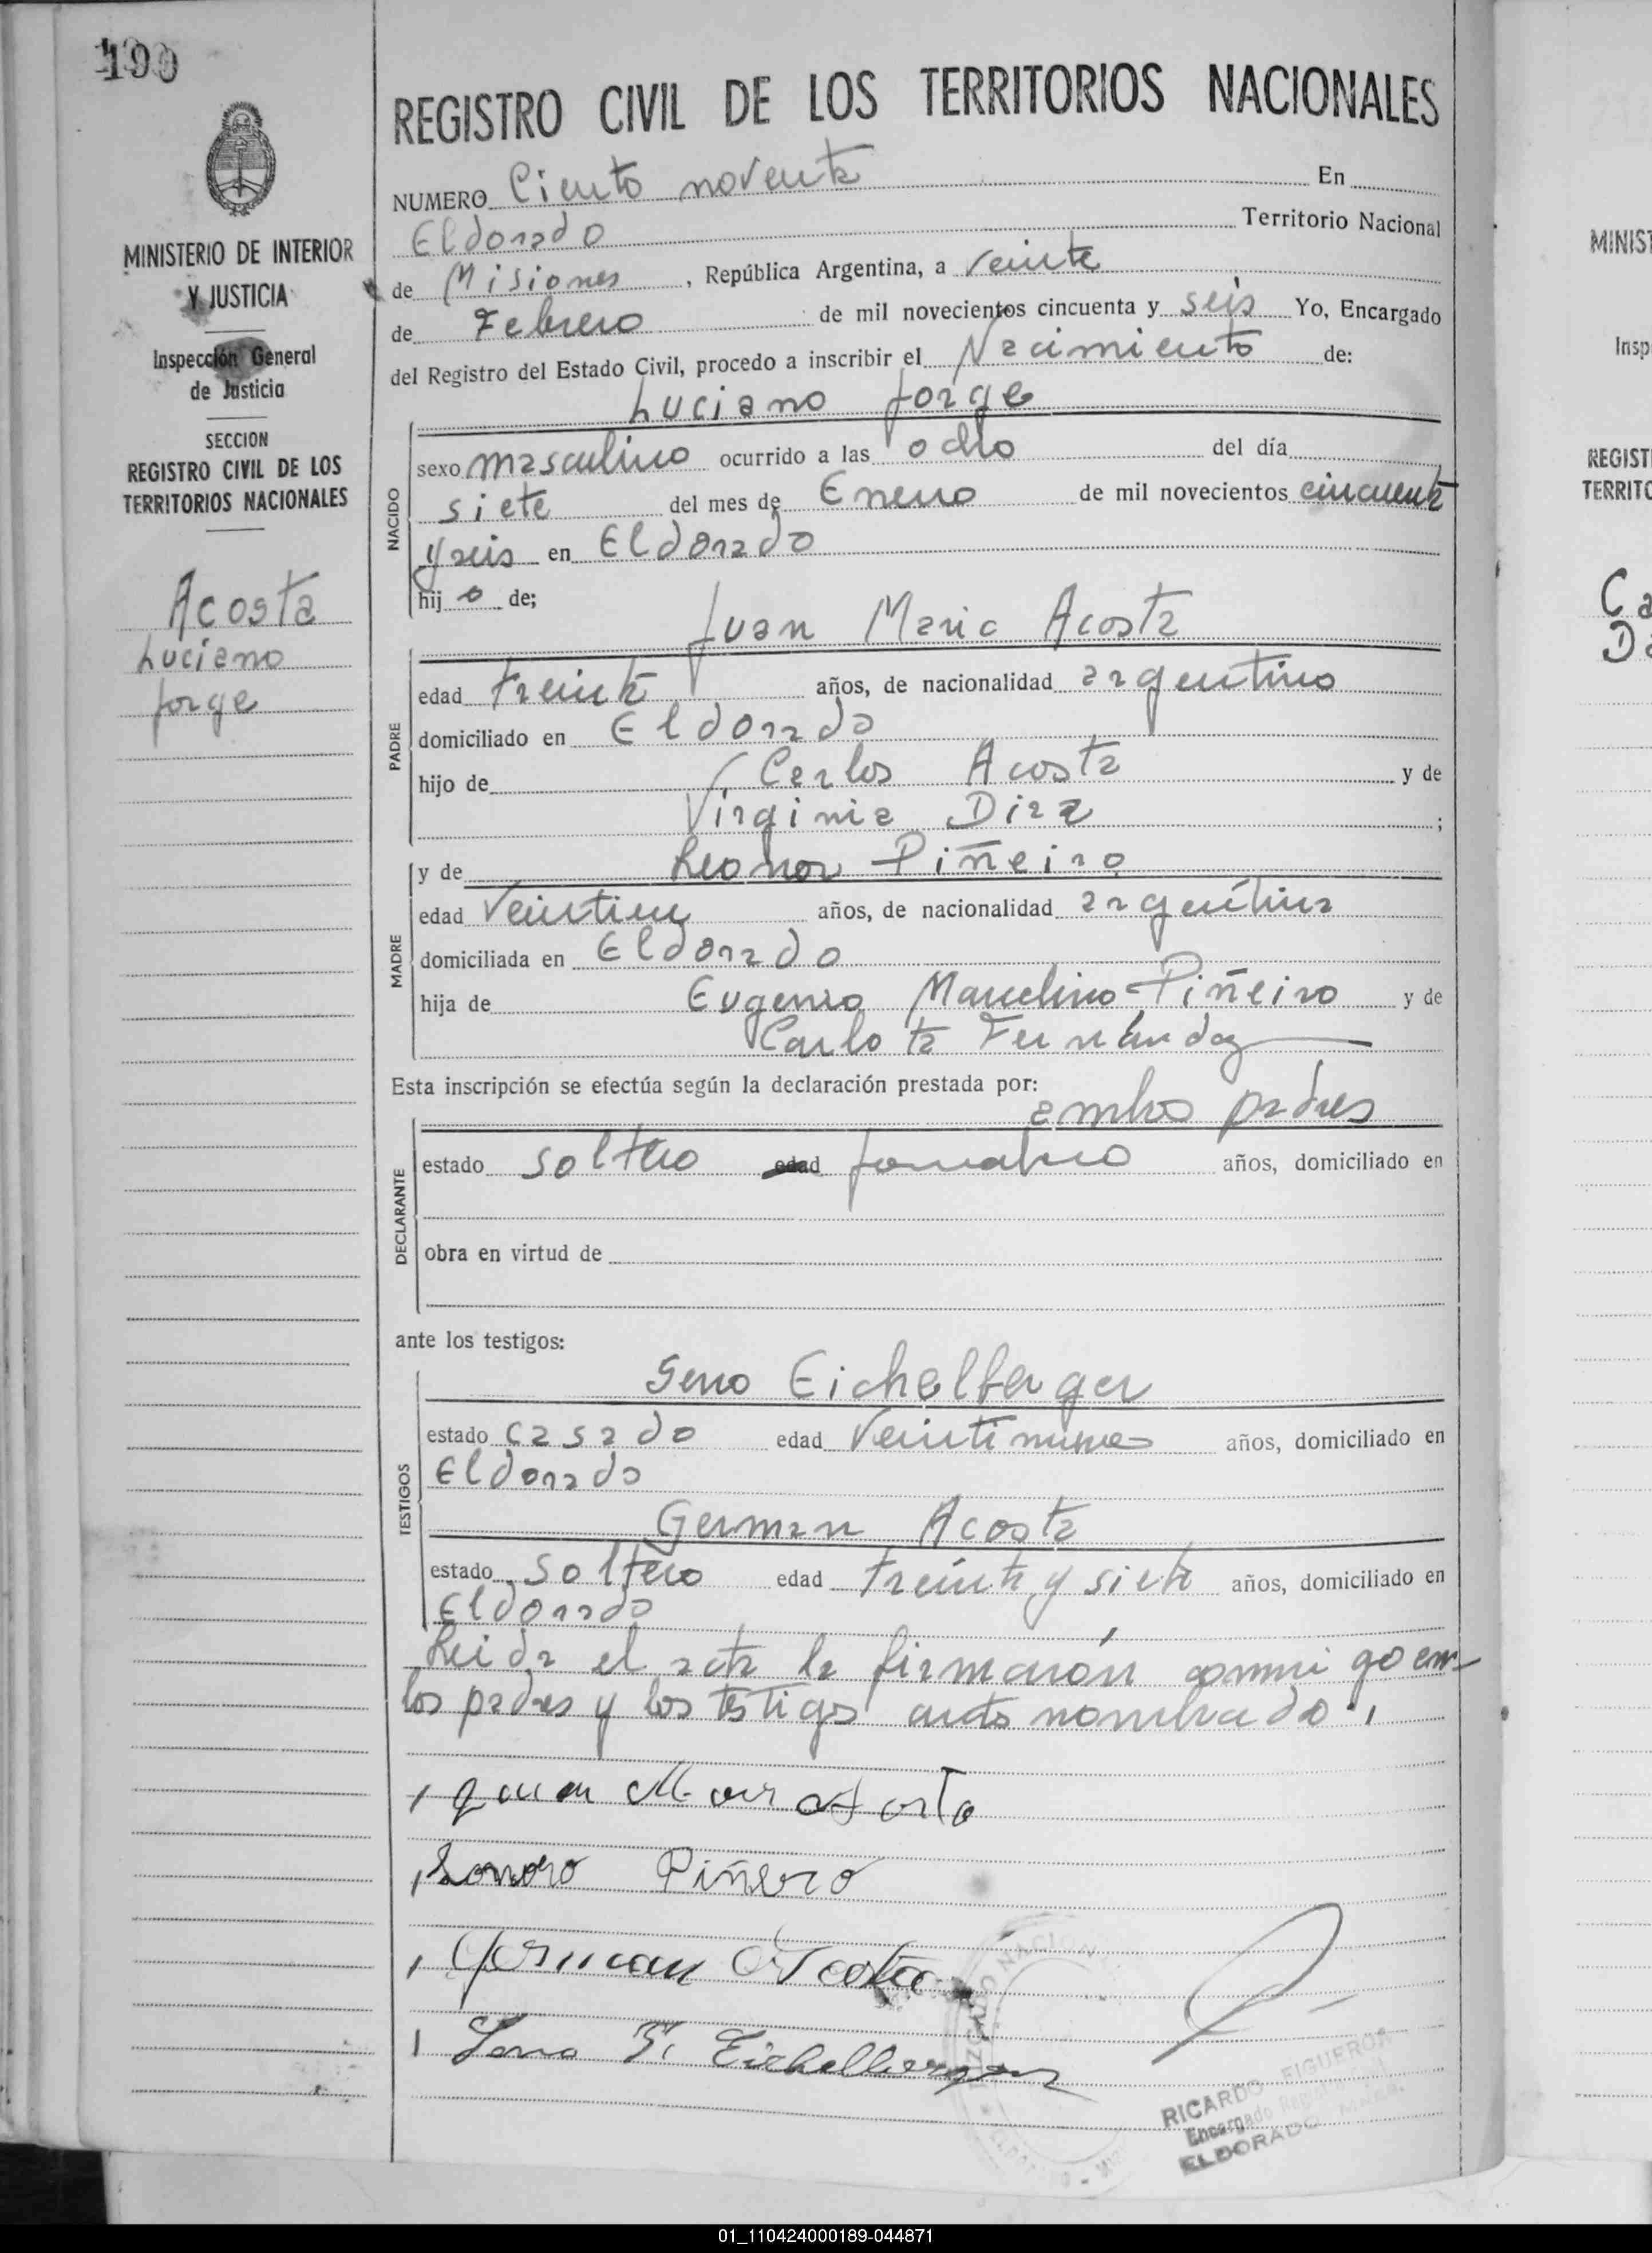 190
REGISTRO CIVIL DE LOS TERRITORIOS NACIONALES
MINISTERIO DE INTERIOR
Y JUSTICIA
Inspección General
de Justicia
SECCION
REGISTRO CIVIL DE LOS
TERRITORIOS NACIONALES
Acosta
Luciano
Jorge
NUMERO Ciento noventa En
Eldorado Territorio Nacional
de Misiones, República Argentina, a veinte
de Febrero de mil novecientos cincuenta y seis Yo, Encargado
del Registro del Estado Civil, procedo a inscribir el Nacimiento de:
Luciano Jorge
NACIDO
sexo masculino ocurrido a las ocho del día
siete del mes de Enero de mil novecientos cincuenta
y seis en Eldorado
hij o de;
Juan Maria Acosta
PADRE
edad treinta años, de nacionalidad argentino
domiciliado en Eldorado
hijo de Carlos Acosta y de
Virginia Diaz ;
MADRE
y de Leonor Piñeiro
edad Veintiun años, de nacionalidad argentina
domiciliada en Eldorado
hija de Eugenio Marcelino Piñeiro y de
Carlota Fernandez
Esta inscripción se efectúa según la declaración prestada por:
ambos padres
DECLARANTE
estado soltero edad jornalero años, domiciliado en
obra en virtud de
ante los testigos:
TESTIGOS
Seno Eichelberger
estado casado edad Veintinueve años, domiciliado en
Eldorado
German Acosta
estado soltero edad treinta y siete años, domiciliado en
Eldorado
Leida el acta la firmarón conmigo
los padres y los testigos antes nombrado
Juan Maria Acosta
Piñero
German Acosta
Eichelberger
RICARDO FIGUERON
Encargado Registro
ELDORADO
MINIST
Insp
REGIST
TERRITO
Ca
01_110424000189-044871